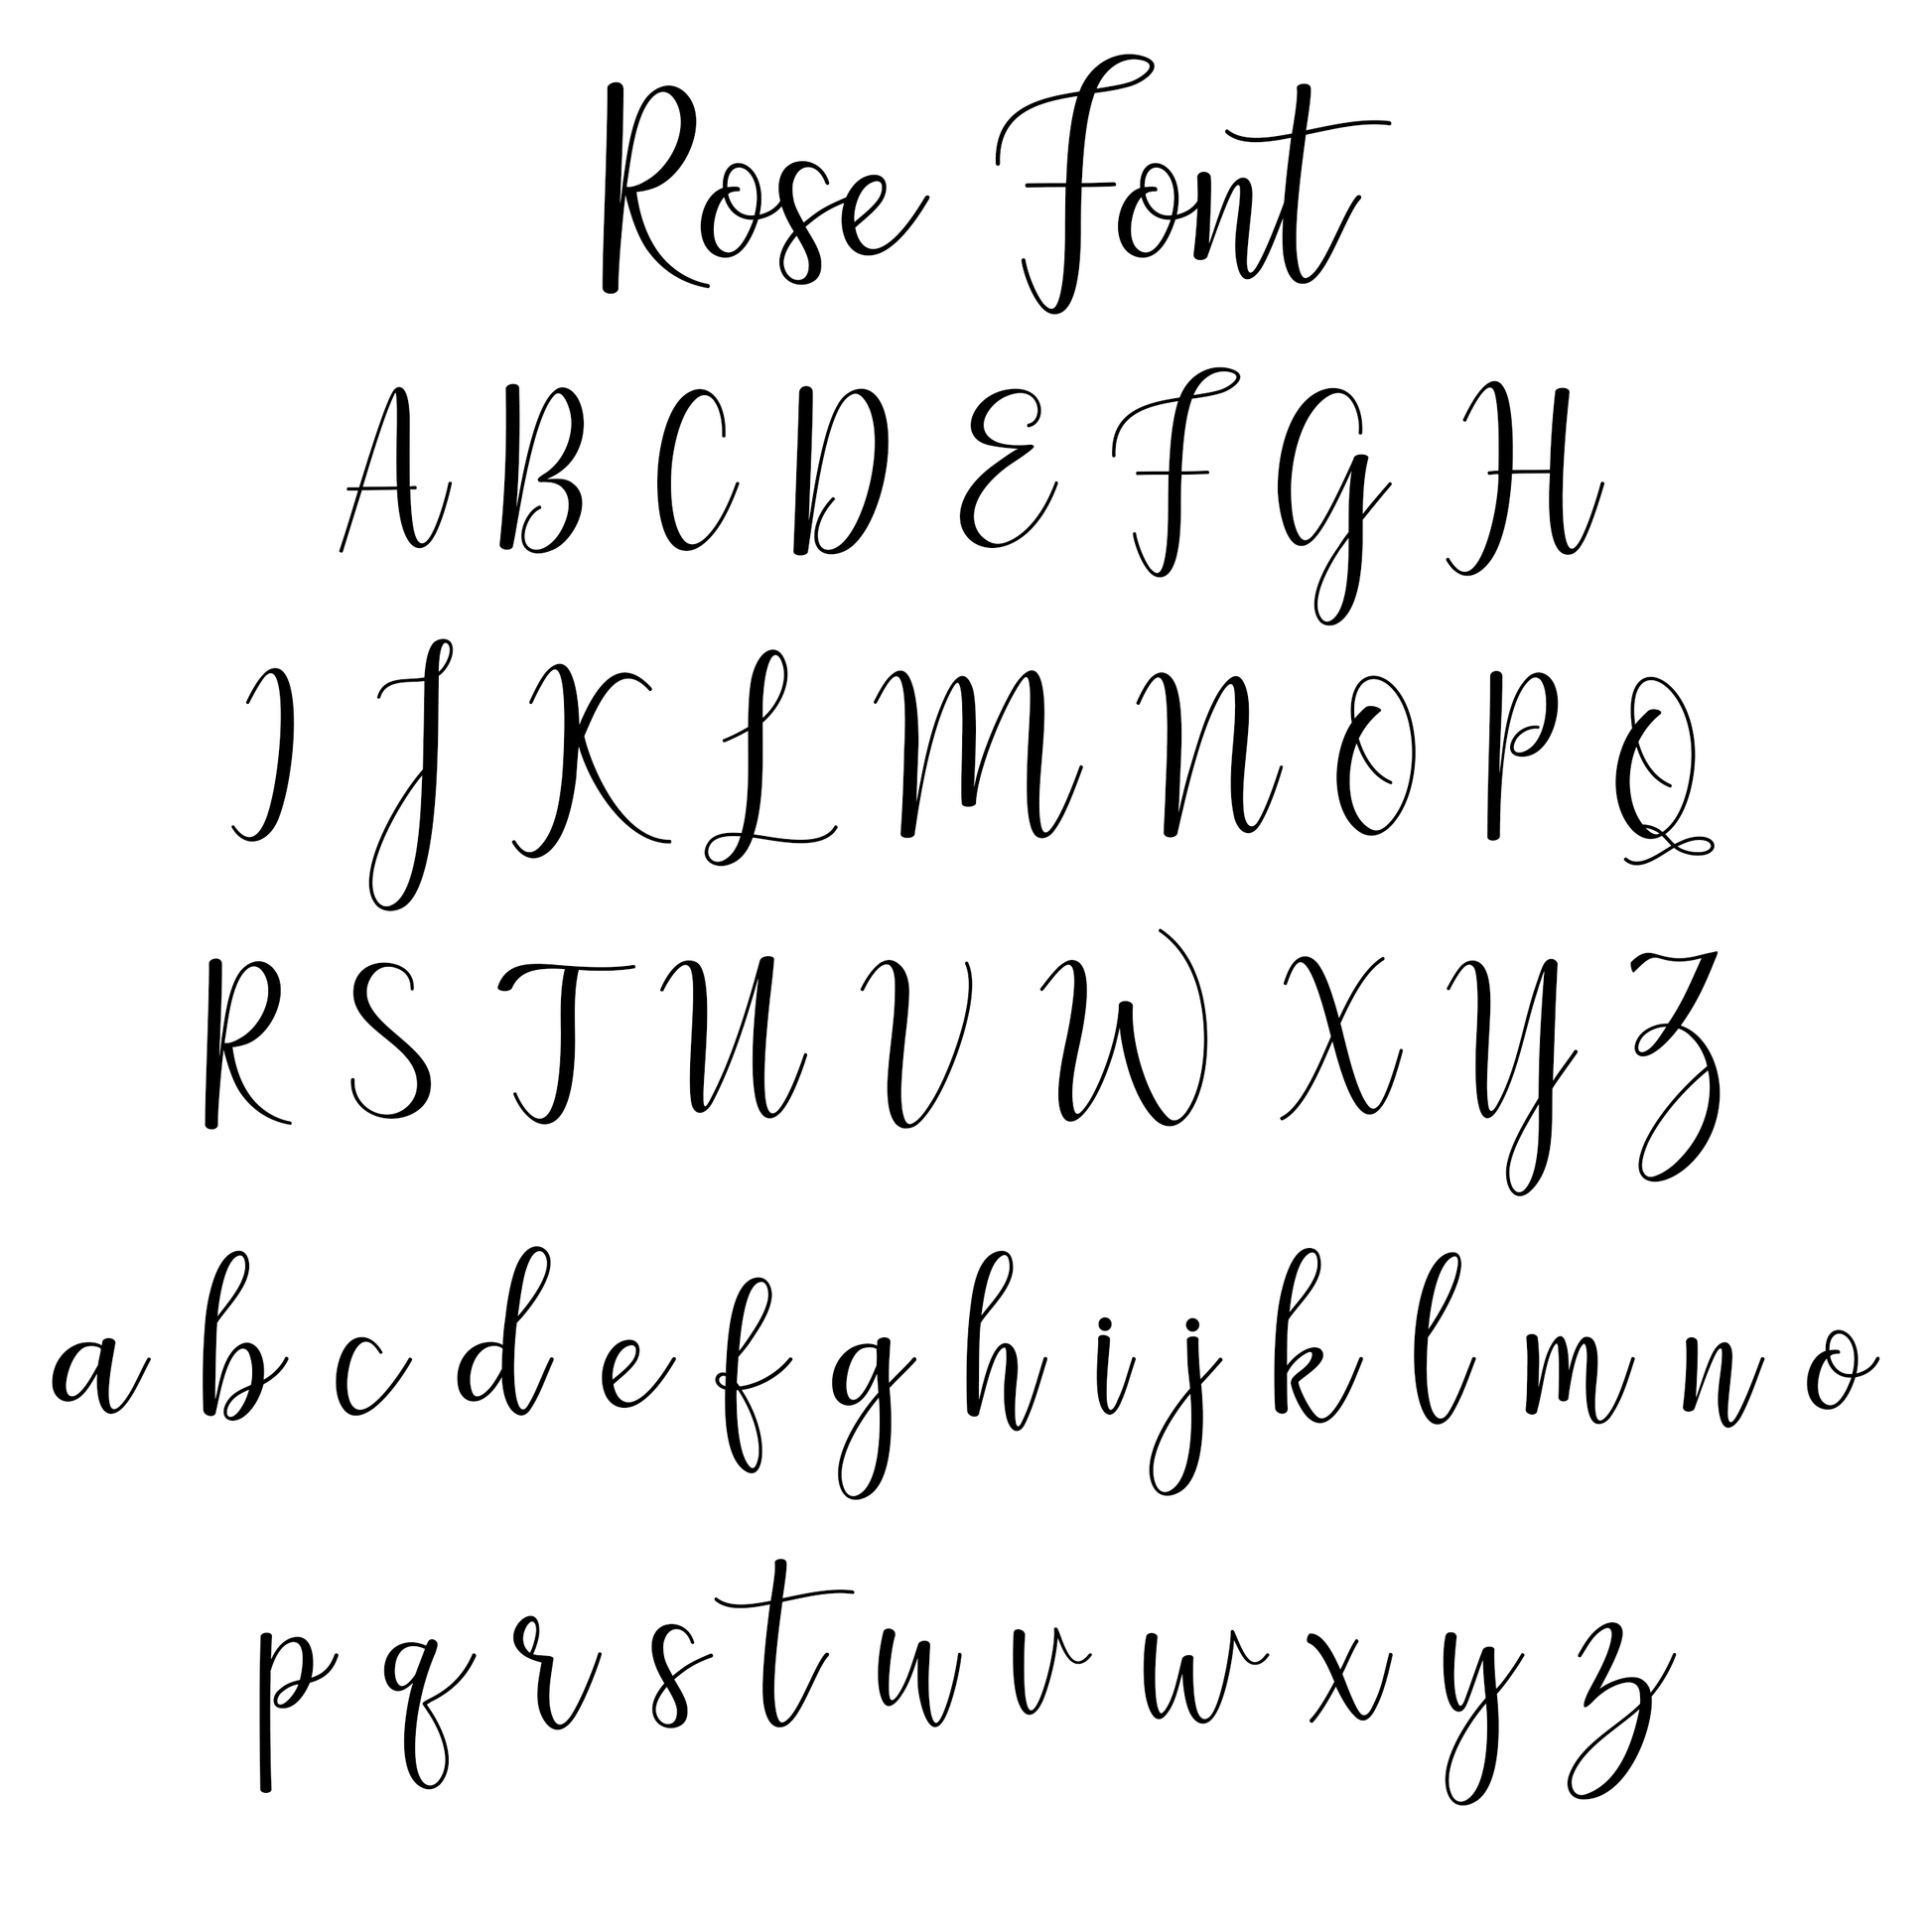 Rose Font
A B C D E F G H
I J K L M N O P Q
R S T U V W X Y Z
a b c d e f g h i j k l m n o
p q r s t u v w x y z